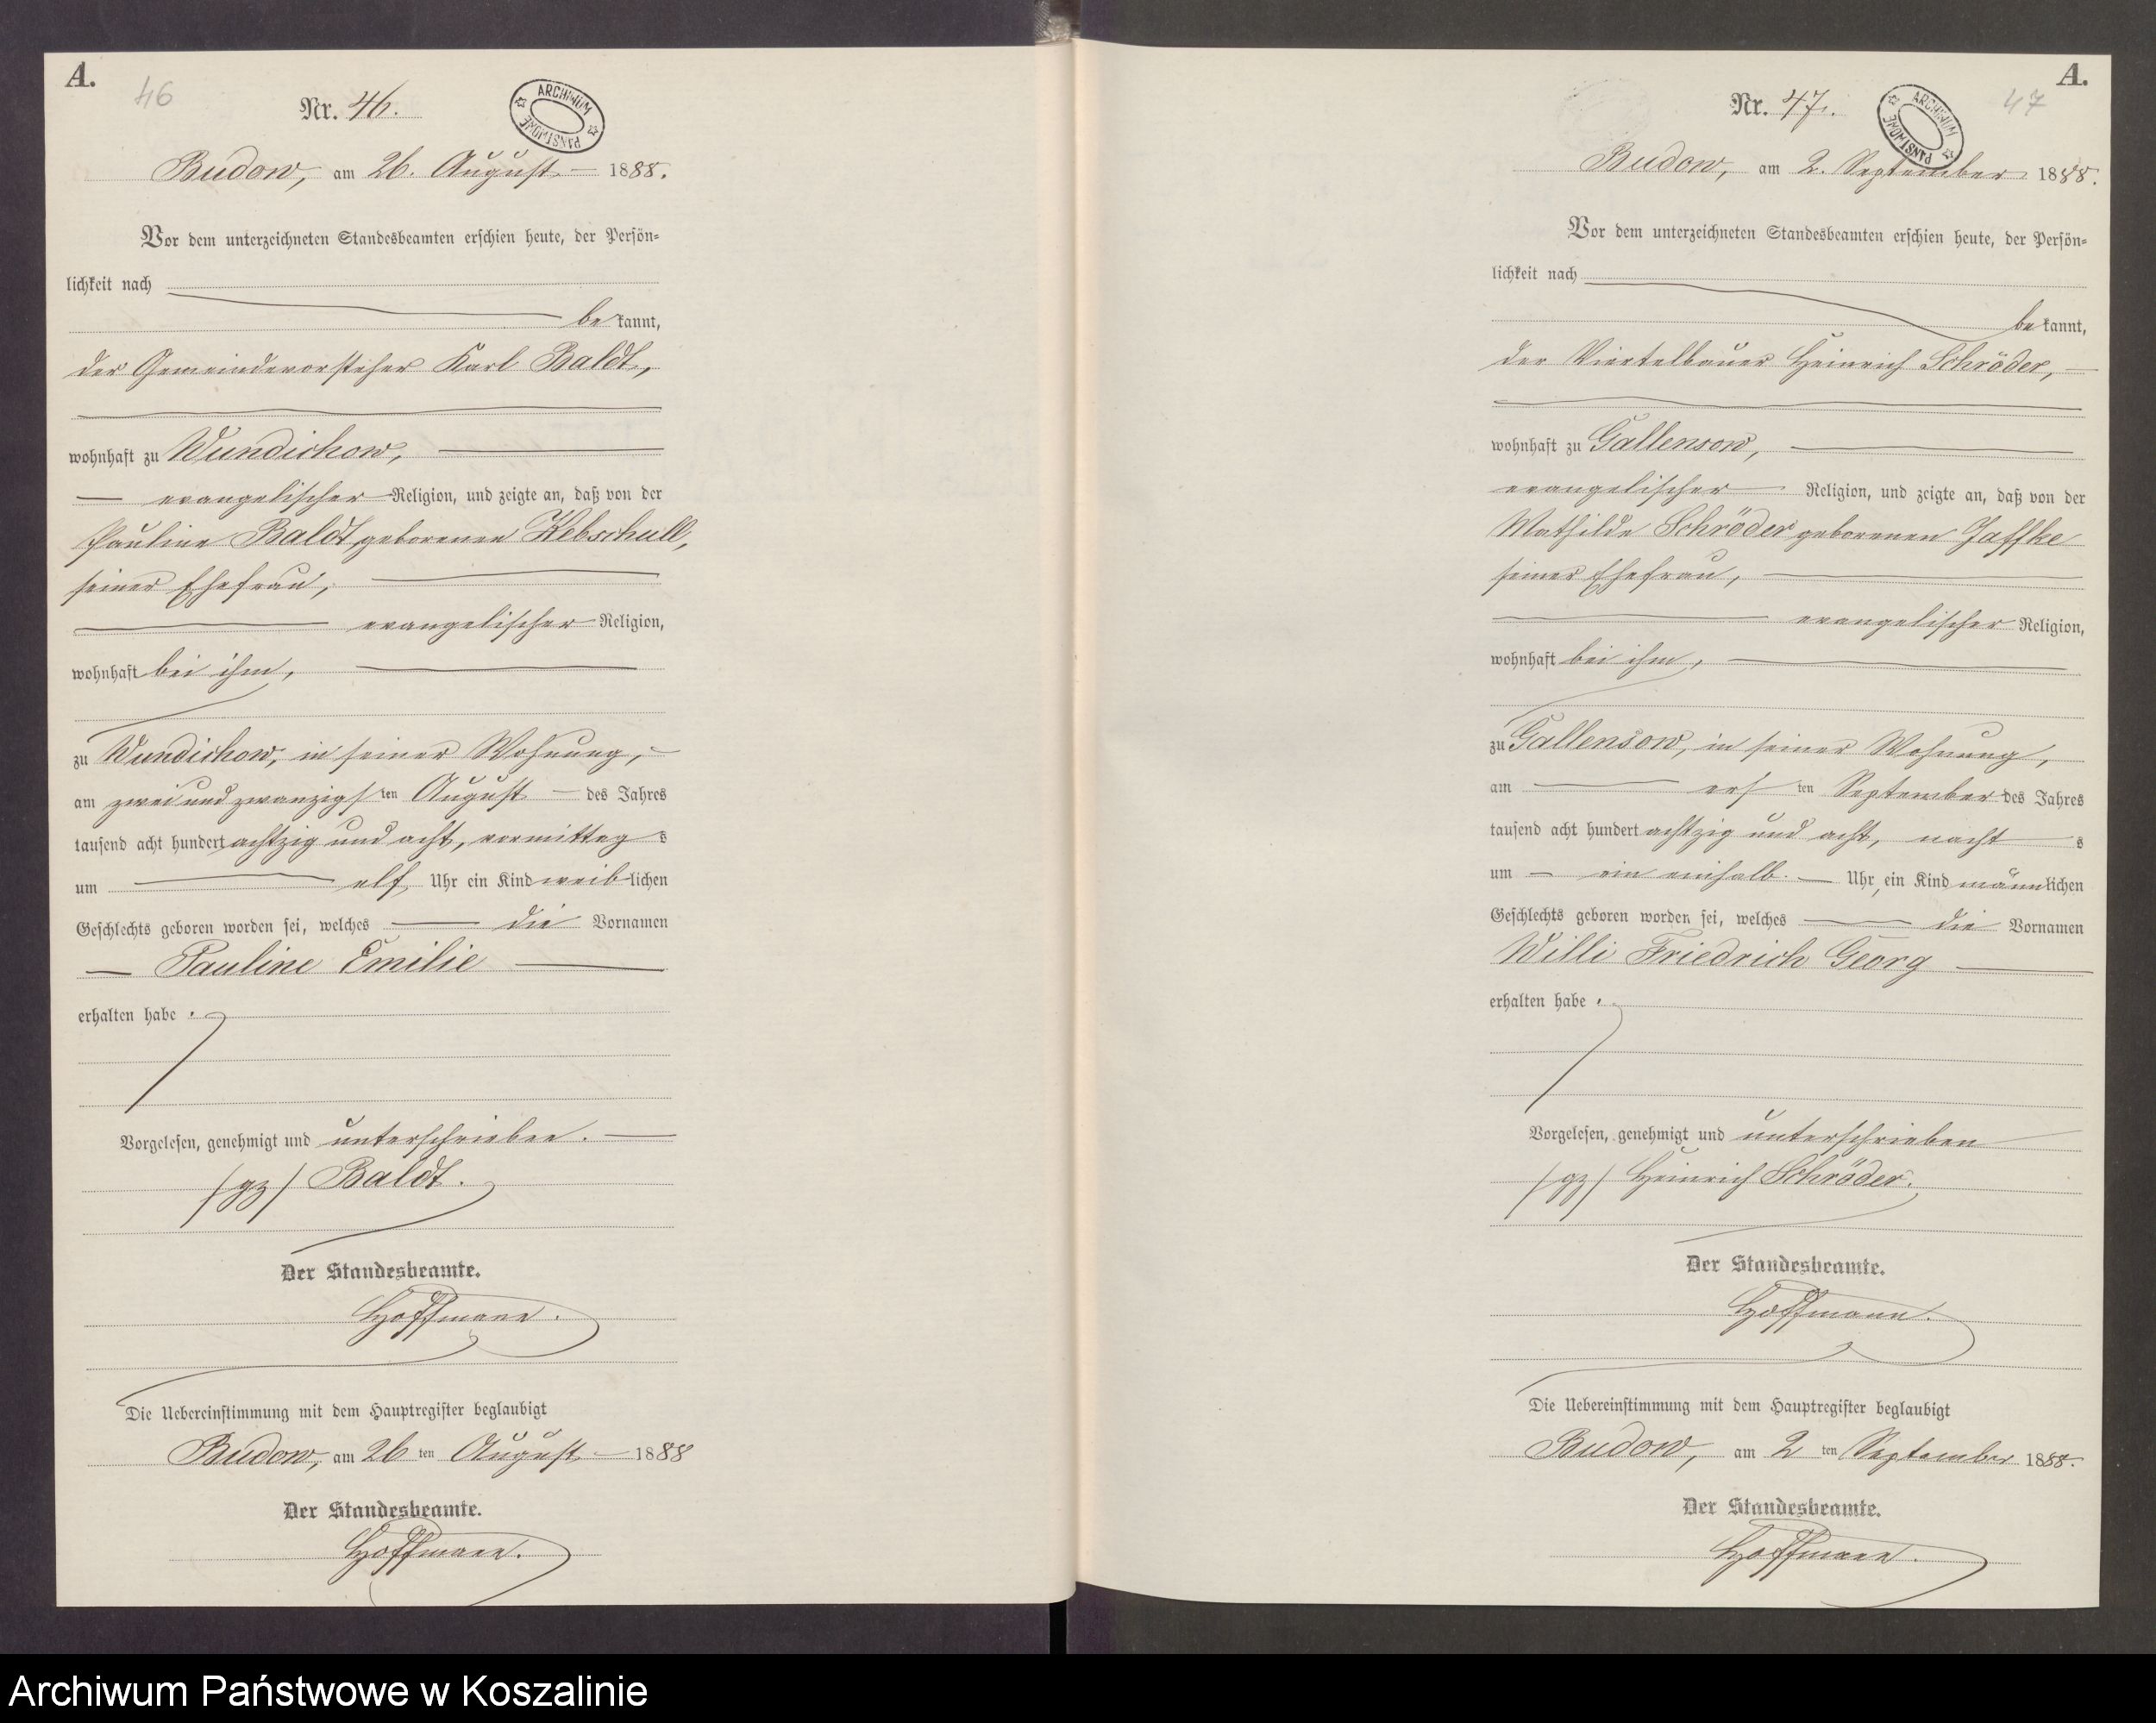 A.
46
Nr. 46.
ARCHIWUM PAŃSTWOWE
Budow, am 26. August 1888.
Vor dem unterzeichneten Standesbeamten erschien heute, der Persön-
lichkeit nach
bekannt,
der Gemeindevorsteher Karl Baldt,
wohnhaft zu Wundichow,
evangelischer Religion, und zeigte an, daß von der
Pauline Baldt geborenen Kebschull,
seiner Ehefrau,
evangelischer Religion,
wohnhaft bei ihm,
zu Wundichow, in seiner Wohnung,
am zwei und zwanzigsten August des Jahres
tausend acht hundert achtzig und acht, vormittags
um elf Uhr ein Kind weiblichen
Geschlechts geboren worden sei, welches die Vornamen
Pauline Emilie
erhalten habe.
Vorgelesen, genehmigt und unterschrieben.
(gz) Baldt.
Der Standesbeamte.
Hoffmann.
Die Uebereinstimmung mit dem Hauptregister beglaubigt
Budow, am 26 ten August 1888
Der Standesbeamte.
Hoffmann.
A.
47
Nr. 47.
ARCHIWUM PAŃSTWOWE
Budow, am 2. September 1888.
Vor dem unterzeichneten Standesbeamten erschien heute, der Persön-
lichkeit nach
bekannt,
der Viertelbauer Heinrich Schröder,
wohnhaft zu Gallensow,
evangelischer Religion, und zeigte an, daß von der
Mathilde Schröder geborenen Jaffke
seiner Ehefrau,
evangelischer Religion,
wohnhaft bei ihm,
zu Gallensow, in seiner Wohnung,
am ersten September des Jahres
tausend acht hundert achtzig und acht, nachts
um ein einhalb Uhr, ein Kind männlichen
Geschlechts geboren worden sei, welches die Vornamen
Willi Friedrich Georg
erhalten habe.
Vorgelesen, genehmigt und unterschrieben
(gz) Heinrich Schröder.
Der Standesbeamte.
Hoffmann.
Die Uebereinstimmung mit dem Hauptregister beglaubigt
Budow, am 2 ten September 1888.
Der Standesbeamte.
Hoffmann.
Archiwum Państwowe w Koszalinie